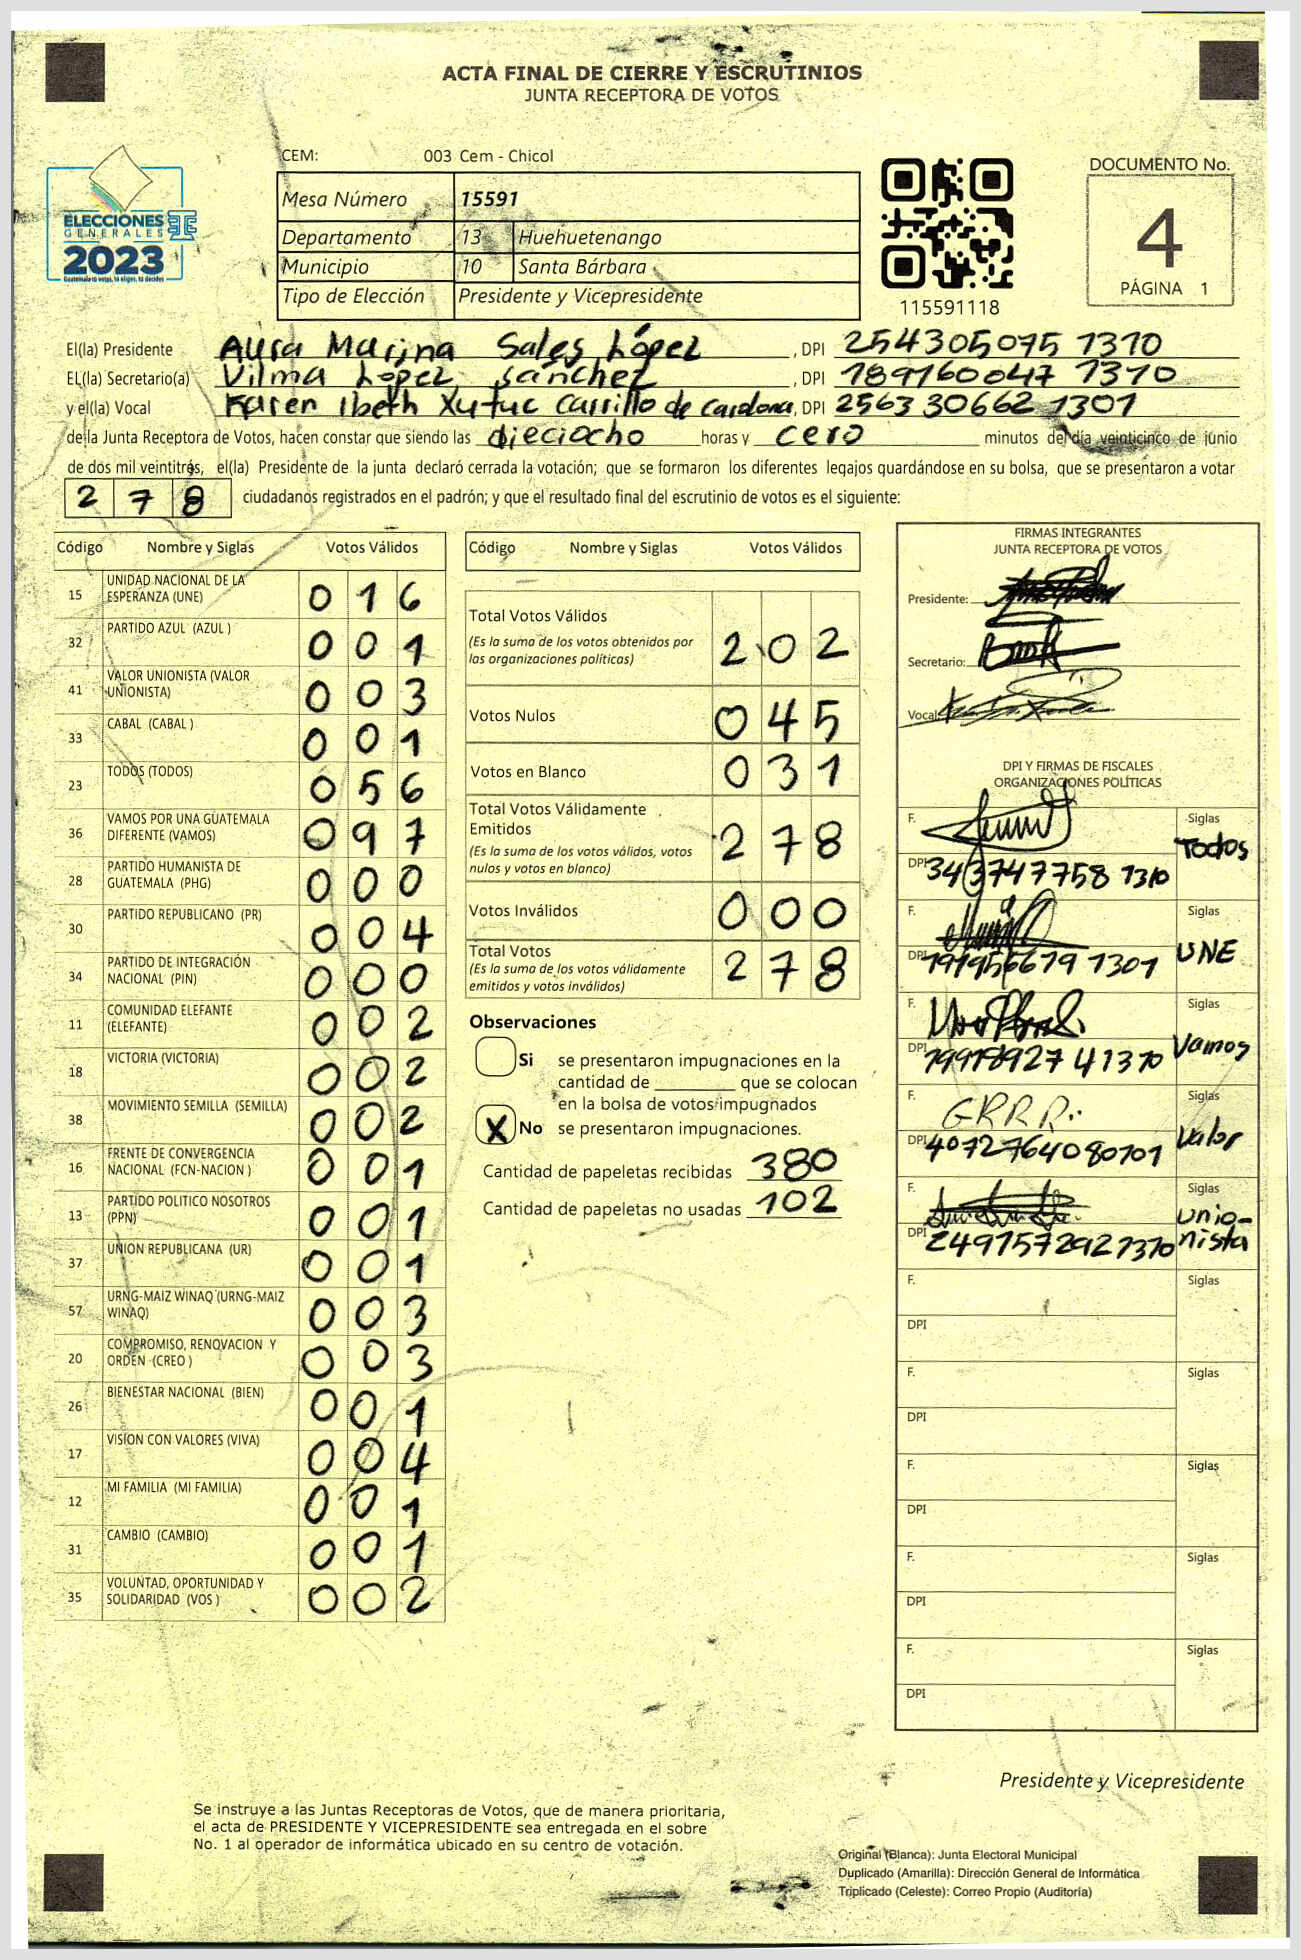 ACTA FINAL DE CIERRE Y ESCRUTINIOS
JUNTA RECEPTORA DE VOTOS
CEM: 003 Cem - Chicol
DOCUMENTO No.
4
PÁGINA 1
ELECCIONES
GENERALES
2023
Guatemala tú votas, tú eliges, tú decides
Mesa Número 15591
Departamento 13 Huehuetenango
Municipio 10 Santa Bárbara
Tipo de Elección Presidente y Vicepresidente
115591118
El(la) Presidente Aura Marina Sales López , DPI 254305075 1310
EL(la) Secretario(a) Vilma López Sánchez , DPI 189160047 1310
y el(la) Vocal Karen Ibeth Xutuc Carrillo de Cardona, DPI 256330662 1301
de la Junta Receptora de Votos, hacen constar que siendo las dieciocho horas y cero minutos del día veinticinco de junio
de dos mil veintitrés, el(la) Presidente de la junta declaró cerrada la votación; que se formaron los diferentes legajos guardándose en su bolsa, que se presentaron a votar
278 ciudadanos registrados en el padrón; y que el resultado final del escrutinio de votos es el siguiente:
Código Nombre y Siglas Votos Válidos
15 UNIDAD NACIONAL DE LA ESPERANZA (UNE) 016
32 PARTIDO AZUL (AZUL ) 001
41 VALOR UNIONISTA (VALOR UNIONISTA) 003
33 CABAL (CABAL ) 001
23 TODOS (TODOS) 056
36 VAMOS POR UNA GUATEMALA DIFERENTE (VAMOS) 097
28 PARTIDO HUMANISTA DE GUATEMALA (PHG) 000
30 PARTIDO REPUBLICANO (PR) 004
34 PARTIDO DE INTEGRACIÓN NACIONAL (PIN) 000
11 COMUNIDAD ELEFANTE (ELEFANTE) 002
18 VICTORIA (VICTORIA) 002
38 MOVIMIENTO SEMILLA (SEMILLA) 002
16 FRENTE DE CONVERGENCIA NACIONAL (FCN-NACION ) 001
13 PARTIDO POLITICO NOSOTROS (PPN) 001
37 UNION REPUBLICANA (UR) 001
57 URNG-MAIZ WINAQ (URNG-MAIZ WINAQ) 003
20 COMPROMISO, RENOVACION Y ORDEN (CREO ) 003
26 BIENESTAR NACIONAL (BIEN) 001
17 VISION CON VALORES (VIVA) 004
12 MI FAMILIA (MI FAMILIA) 001
31 CAMBIO (CAMBIO) 001
35 VOLUNTAD, OPORTUNIDAD Y SOLIDARIDAD (VOS ) 002
Código Nombre y Siglas Votos Válidos
Total Votos Válidos 202
(Es la suma de los votos obtenidos por
las organizaciones políticas)
Votos Nulos 045
Votos en Blanco 031
Total Votos Válidamente
Emitidos 278
(Es la suma de los votos válidos, votos
nulos y votos en blanco)
Votos Inválidos 000
Total Votos 278
(Es la suma de los votos válidamente
emitidos y votos inválidos)
Observaciones
Si se presentaron impugnaciones en la
cantidad de ________ que se colocan
en la bolsa de votos impugnados
X No se presentaron impugnaciones.
Cantidad de papeletas recibidas 380
Cantidad de papeletas no usadas 102
FIRMAS INTEGRANTES
JUNTA RECEPTORA DE VOTOS
Presidente:
Secretario:
Vocal
DPI Y FIRMAS DE FISCALES
ORGANIZACIONES POLÍTICAS
F. Siglas
Todos
DPI 343747758 1310
F. Siglas
UNE
DPI 191956679 1301
F. Siglas
Vamos
DPI
F. G.R.R.P. Siglas
Valor
DPI 4072764080101
F. Siglas
unio-
nista
DPI 2497572921310
F. Siglas
DPI
F. Siglas
DPI
F. Siglas
DPI
F. Siglas
DPI
F. Siglas
DPI
Presidente y Vicepresidente
Se instruye a las Juntas Receptoras de Votos, que de manera prioritaria,
el acta de PRESIDENTE Y VICEPRESIDENTE sea entregada en el sobre
No. 1 al operador de informática ubicado en su centro de votación.
Original (Blanca): Junta Electoral Municipal
Duplicado (Amarilla): Dirección General de Informática
Triplicado (Celeste): Correo Propio (Auditoría)